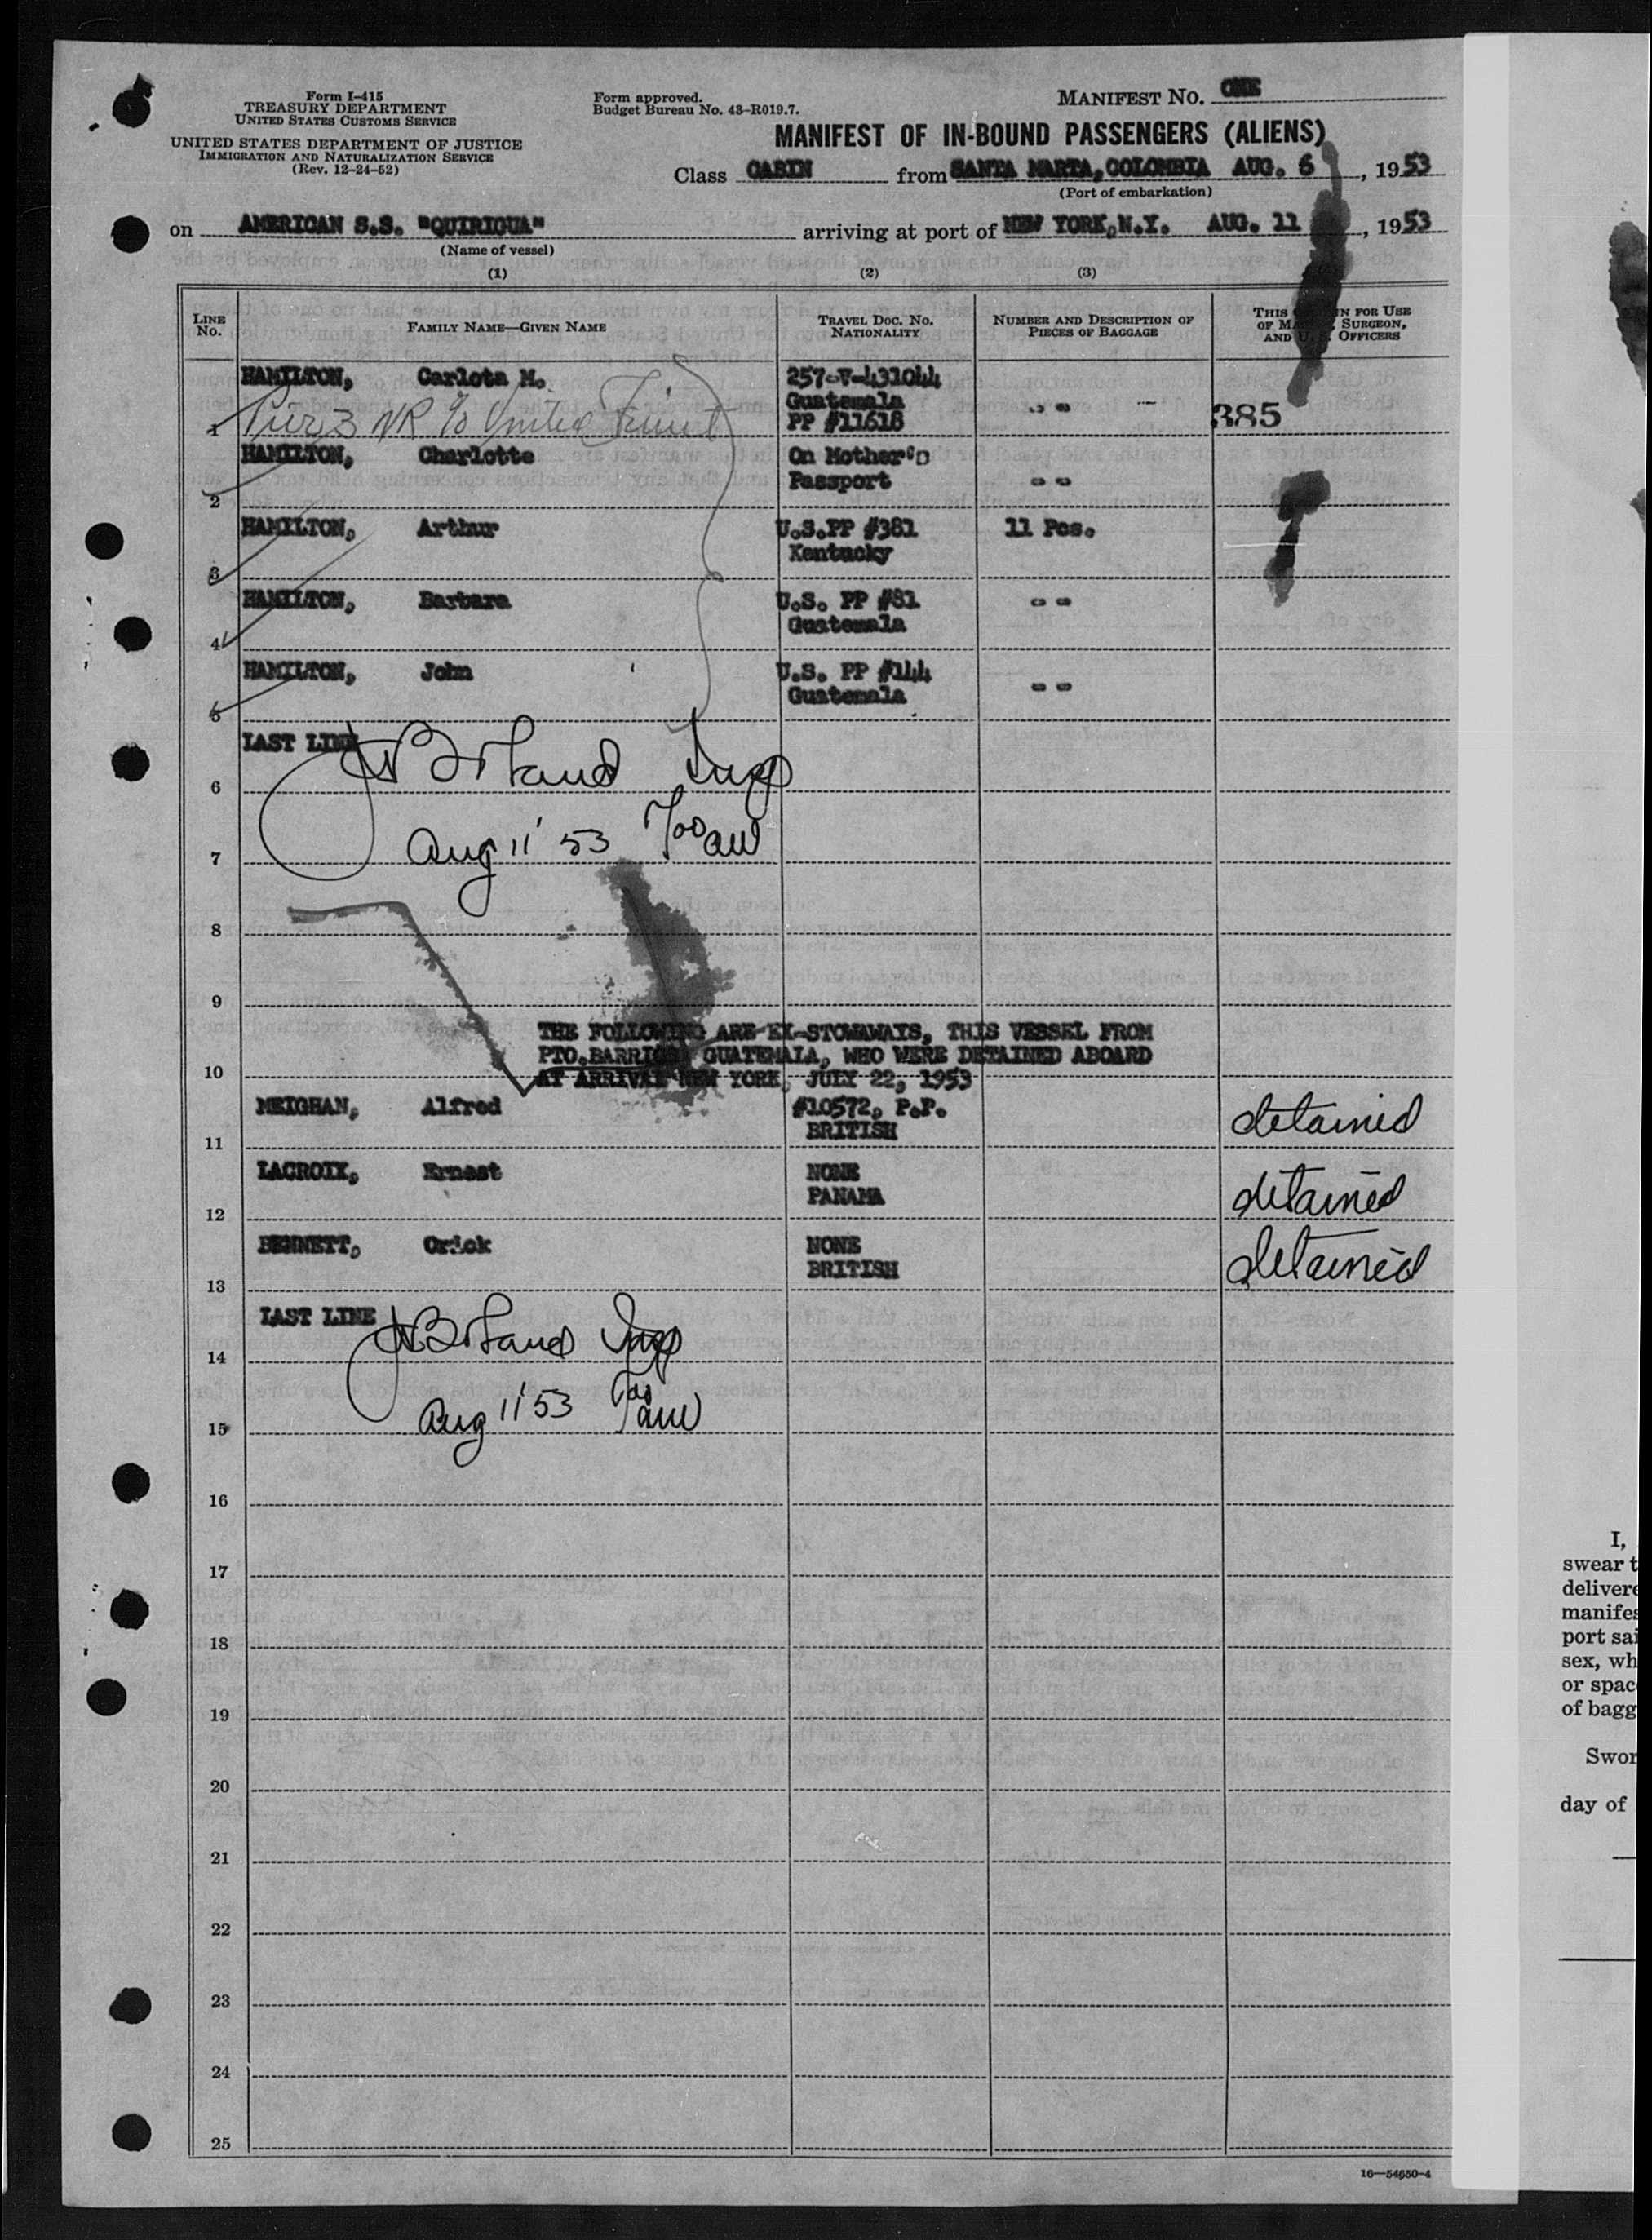 Form I-415
TREASURY DEPARTMENT
UNITED STATES CUSTOMS SERVICE
UNITED STATES DEPARTMENT OF JUSTICE
IMMIGRATION AND NATURALIZATION SERVICE
(Rev. 12-24-52)
Form approved.
Budget Bureau No. 43-R019.7.
MANIFEST No. ONE
MANIFEST OF IN-BOUND PASSENGERS (ALIENS)
Class CABIN from SANTA MARTA, COLOMBIA AUG. 6, 1953
(Port of embarkation)
on AMERICAN S.S. "QUIRIGUA" arriving at port of NEW YORK, N.Y. AUG. 11, 1953
(Name of vessel)
(1) (2) (3)
LINE No. FAMILY NAME—GIVEN NAME TRAVEL DOC. No. NATIONALITY NUMBER AND DESCRIPTION OF PIECES OF BAGGAGE THIS FOR USE OF SURGEON, AND OFFICERS
HAMILTON, Carlota M. 257-V-431044
Guatemala
1 Pier 3 NR c/o United Fruit PP #11618 -- 385
HAMILTON, Charlotte On Mother's
2 Passport --
HAMILTON, Arthur U.S.PP #381 11 Pcs.
3 Kentucky
HAMILTON, Barbara U.S. PP #81 --
4 Guatemala
HAMILTON, John U.S. PP #144
5 Guatemala --
LAST LINE
6 Insp
7 Aug 11 '53 700 am
8
9
THE FOLLOWING ARE EX-STOWAWAYS, THIS VESSEL FROM
PTO.BARRIOS GUATEMALA, WHO WERE DETAINED ABOARD
10 AT ARRIVAL NEW YORK, JULY 22, 1953
MEIGHAN, Alfred #10572, P.P. detained
11 BRITISH
LACROIX, Ernest NONE detained
12 PANAMA
BENNETT, Orick NONE detained
13 BRITISH
LAST LINE
14 Insp
15 Aug 11 '53 700 am
16
17
18
19
20
21
22
23
24
25
16—54650-4
I,
swear t
delivere
manifes
port sai
sex, wh
or spac
of bagg
Swor
day of